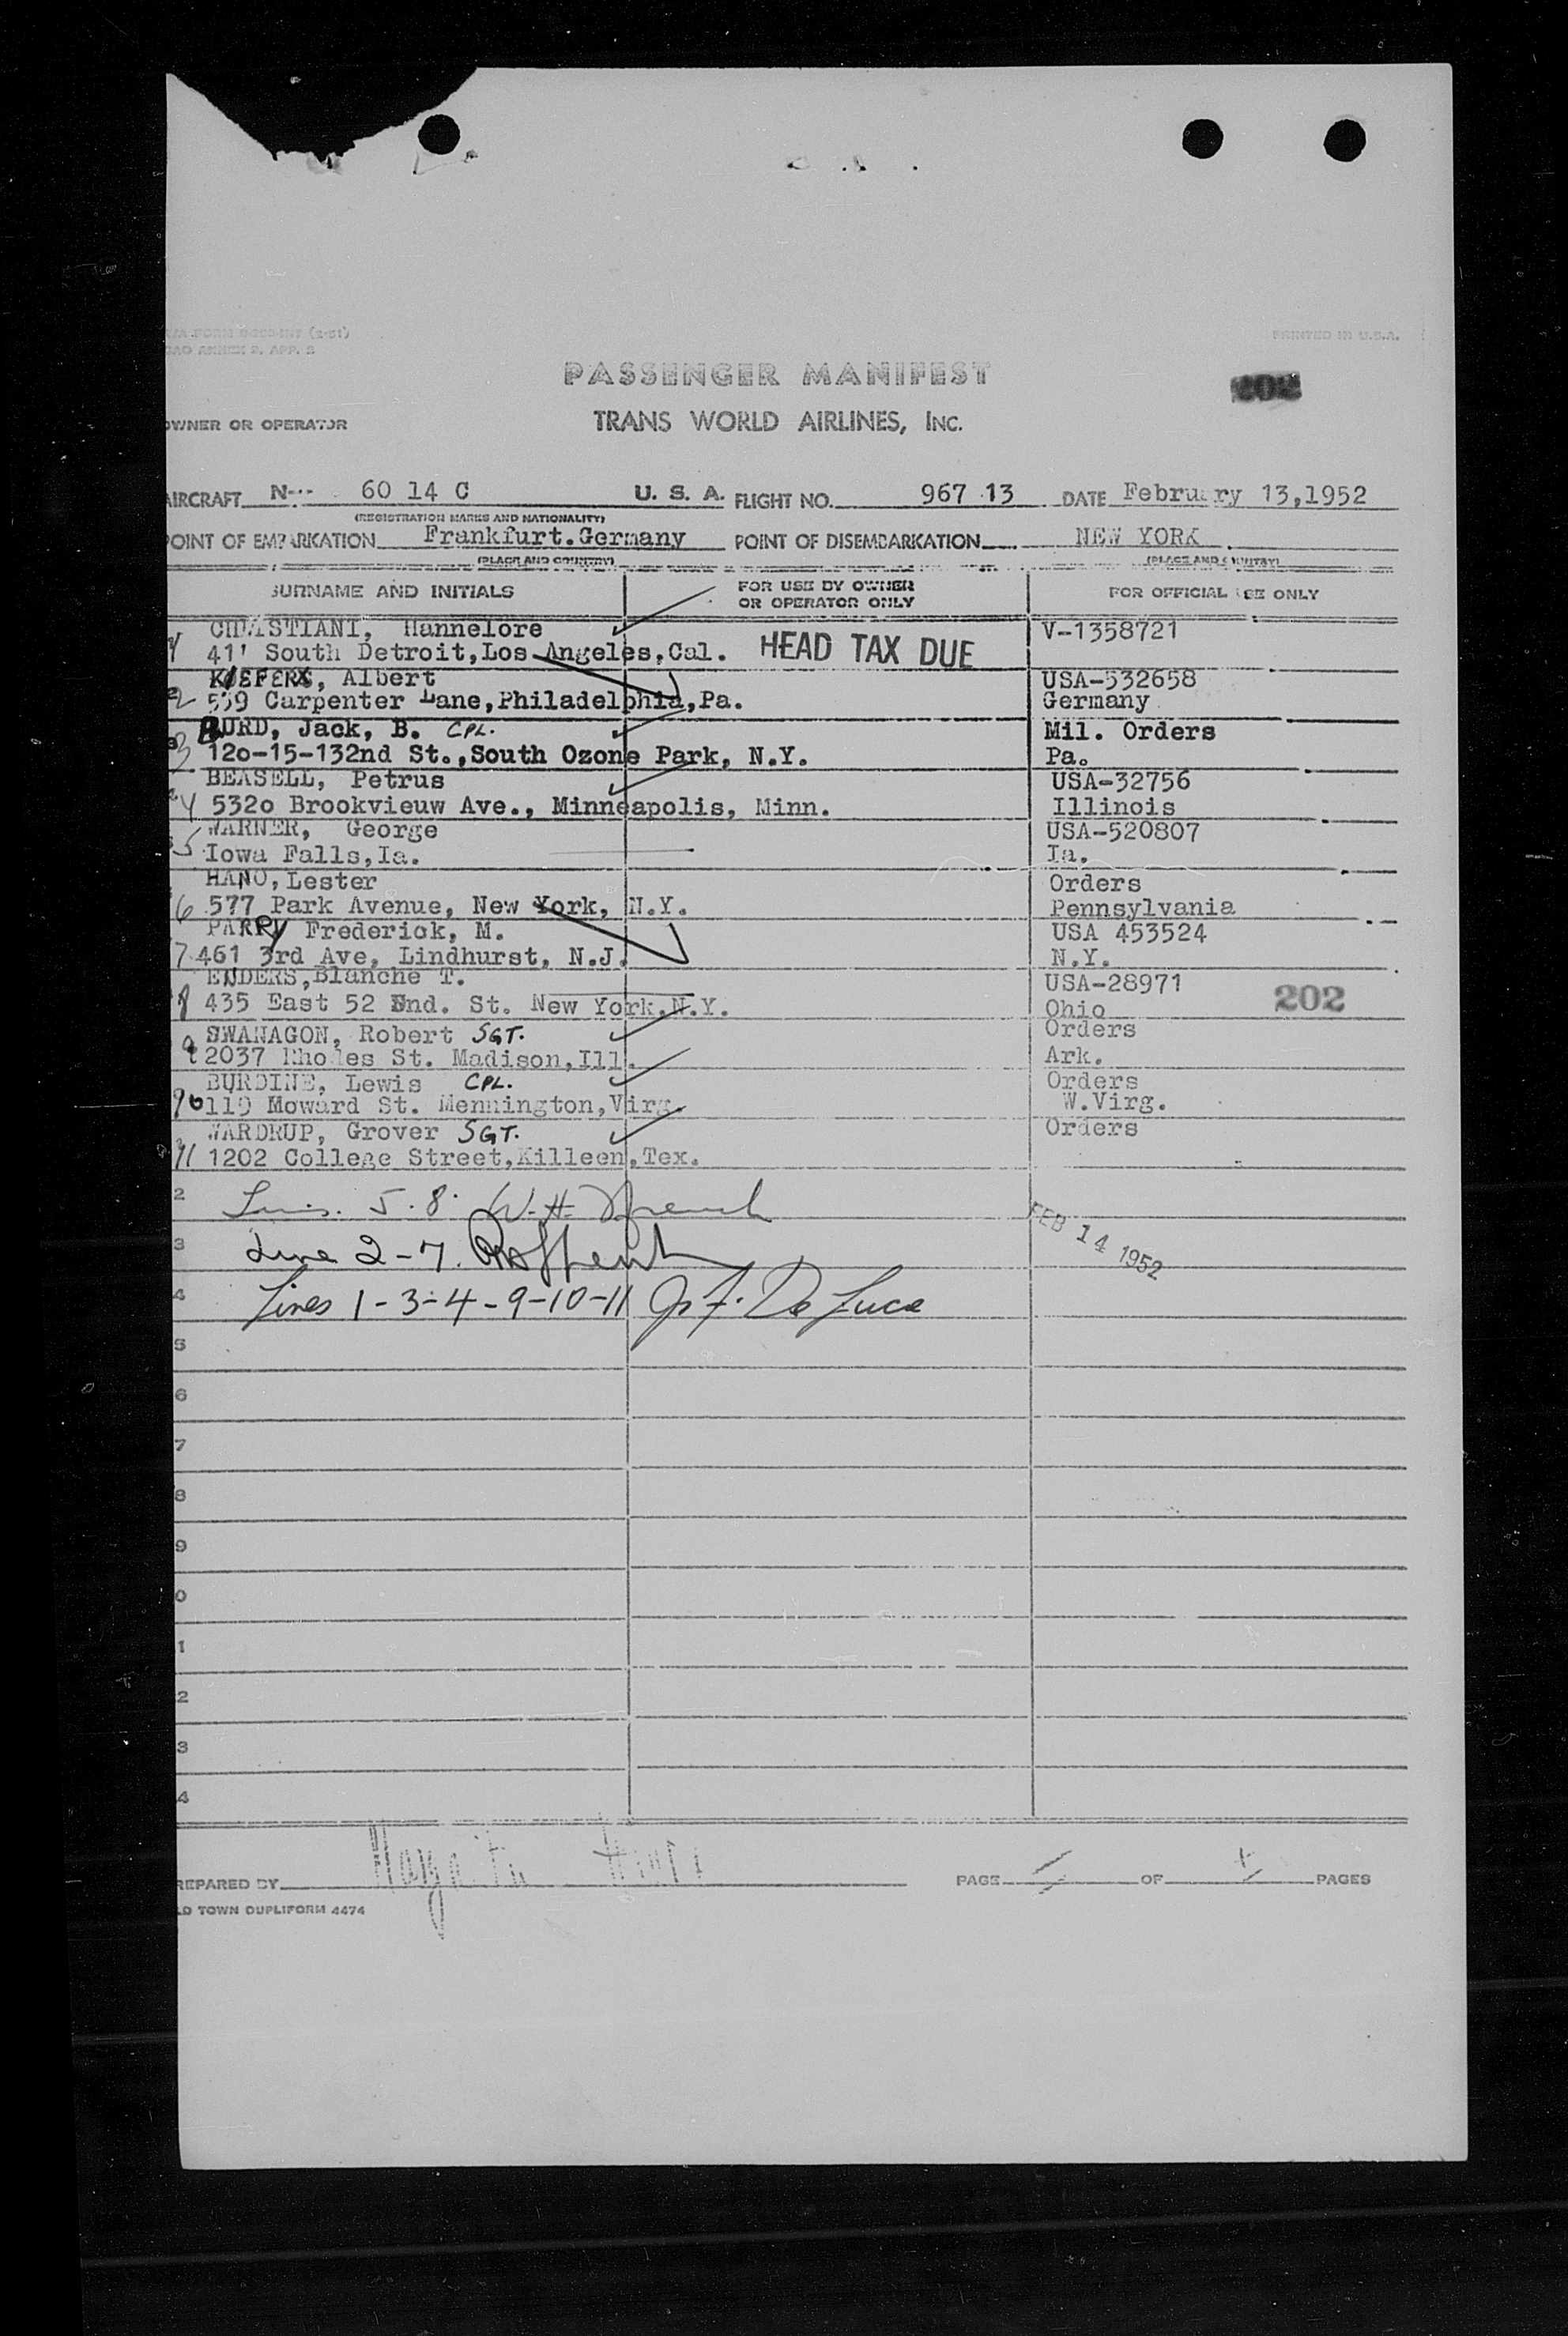 PRINTED IN U.S.A.
PASSENGER MANIFEST
202
OWNER OR OPERATOR TRANS WORLD AIRLINES, INC.
AIRCRAFT N 60 14 C U. S. A. FLIGHT NO. 967 13 DATE February 13,1952
(REGISTRATION MARKS AND NATIONALITY)
POINT OF EMBARKATION Frankfurt.Germany POINT OF DISEMBARKATION NEW YORK
(PLACE AND COUNTRY) (PLACE AND COUNTRY)
SURNAME AND INITIALS FOR USE BY OWNER OR OPERATOR ONLY FOR OFFICIAL USE ONLY
Hannelore V-1358721
South Detroit,Los Angeles,Cal. HEAD TAX DUE
Albert USA-532658
2 Carpenter Lane,Philadelphia,Pa. Germany
BURD, Jack, B. CPL. Mil. Orders
3 12o-15-132nd St.,South Ozone Park, N.Y. Pa.
BEASELL, Petrus USA-32756
4 532o Brookvieuw Ave., Minneapolis, Minn. Illinois
WARNER, George USA-520807
5 Iowa Falls,Ia. Ia.
HANO, Lester Orders
6 577 Park Avenue, New York, N.Y. Pennsylvania
PARRY Frederick, M. USA 453524
7 461 3rd Ave, Lindhurst, N.J. N.Y.
ENDERS,Blanche T. USA-28971
8 435 East 52 End. St. New York.N.Y. Ohio 202
SWANAGON, Robert SGT. Orders
9 2037 Rhodes St. Madison,Ill. Ark.
BURDINE, Lewis CPL. Orders
10 119 Moward St. Mennington,Virg. W.Virg.
WARDRUP, Grover SGT. Orders
11 1202 College Street,Killeen,Tex.
2 5. 8. W. H.
FEB 14 1952
3 Line 2-7.
4 Lines 1-3-4-9-10-11 J. F. De Luca
5
6
7
8
9
0
1
2
3
4
PREPARED BY PAGE 1 OF 1 PAGES
OLD TOWN DUPLIFORM 4474